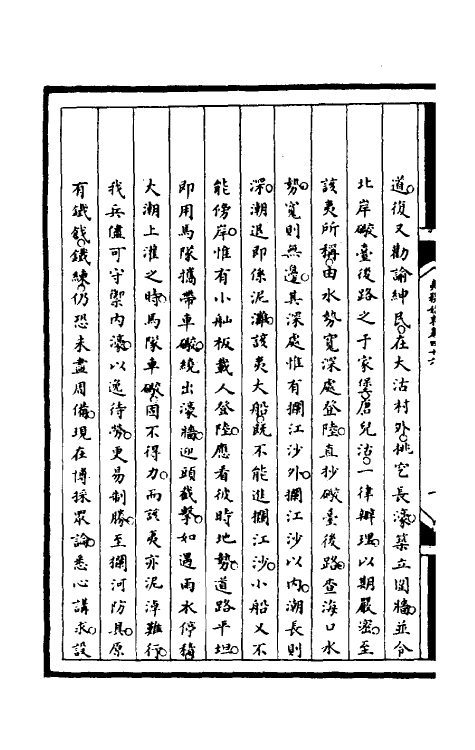 道復又勸諭紳民在大沽村外挑窆長濠築立圍牆並令
北岸礮臺後路之于家堡唐兒沽一律辦理以期嚴密至
該夷所稱由水勢寬深處登陸直抄礮臺後路查海口水
勢寬則無邊其深處惟有攔江沙外攔江沙以內潮長則
深潮退即係泥灘該夷大船既不能進攔江沙小船又不
能傍岸惟有小舢板載人登陸應看彼時地勢道路平坦
即用馬隊攜帶車礮繞出濠牆迎頭截擊如遇雨水停積
大潮上灌之時馬隊車礮固不得力而該夷亦泥濘難行
我兵儘可守禦內濠以逸待勞更易制勝至攔河防具原
有鐵戧鐵練仍恐未盡周備現在博採眾論悉心講求設